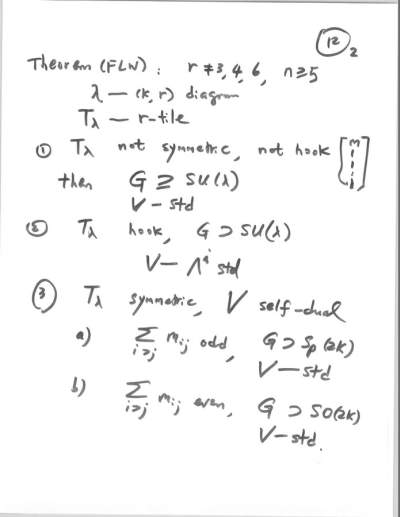 12 2
Theorem (FLW): r ≠ 3, 4, 6, n ≥ 5
λ — (k, r) diagram
T_λ — r-tile
① T_λ not symmetric, not hook
then G ≥ SU(λ)
V — std
② T_λ hook, G ⊃ SU(λ)
V — Λ^i std
③ T_λ symmetric, V self-dual
a) Σ_{i>j} m_{ij} odd, G ⊃ Sp(2k)
V — std
b) Σ_{i>j} m_{ij} even, G ⊃ SO(2k)
V — std.